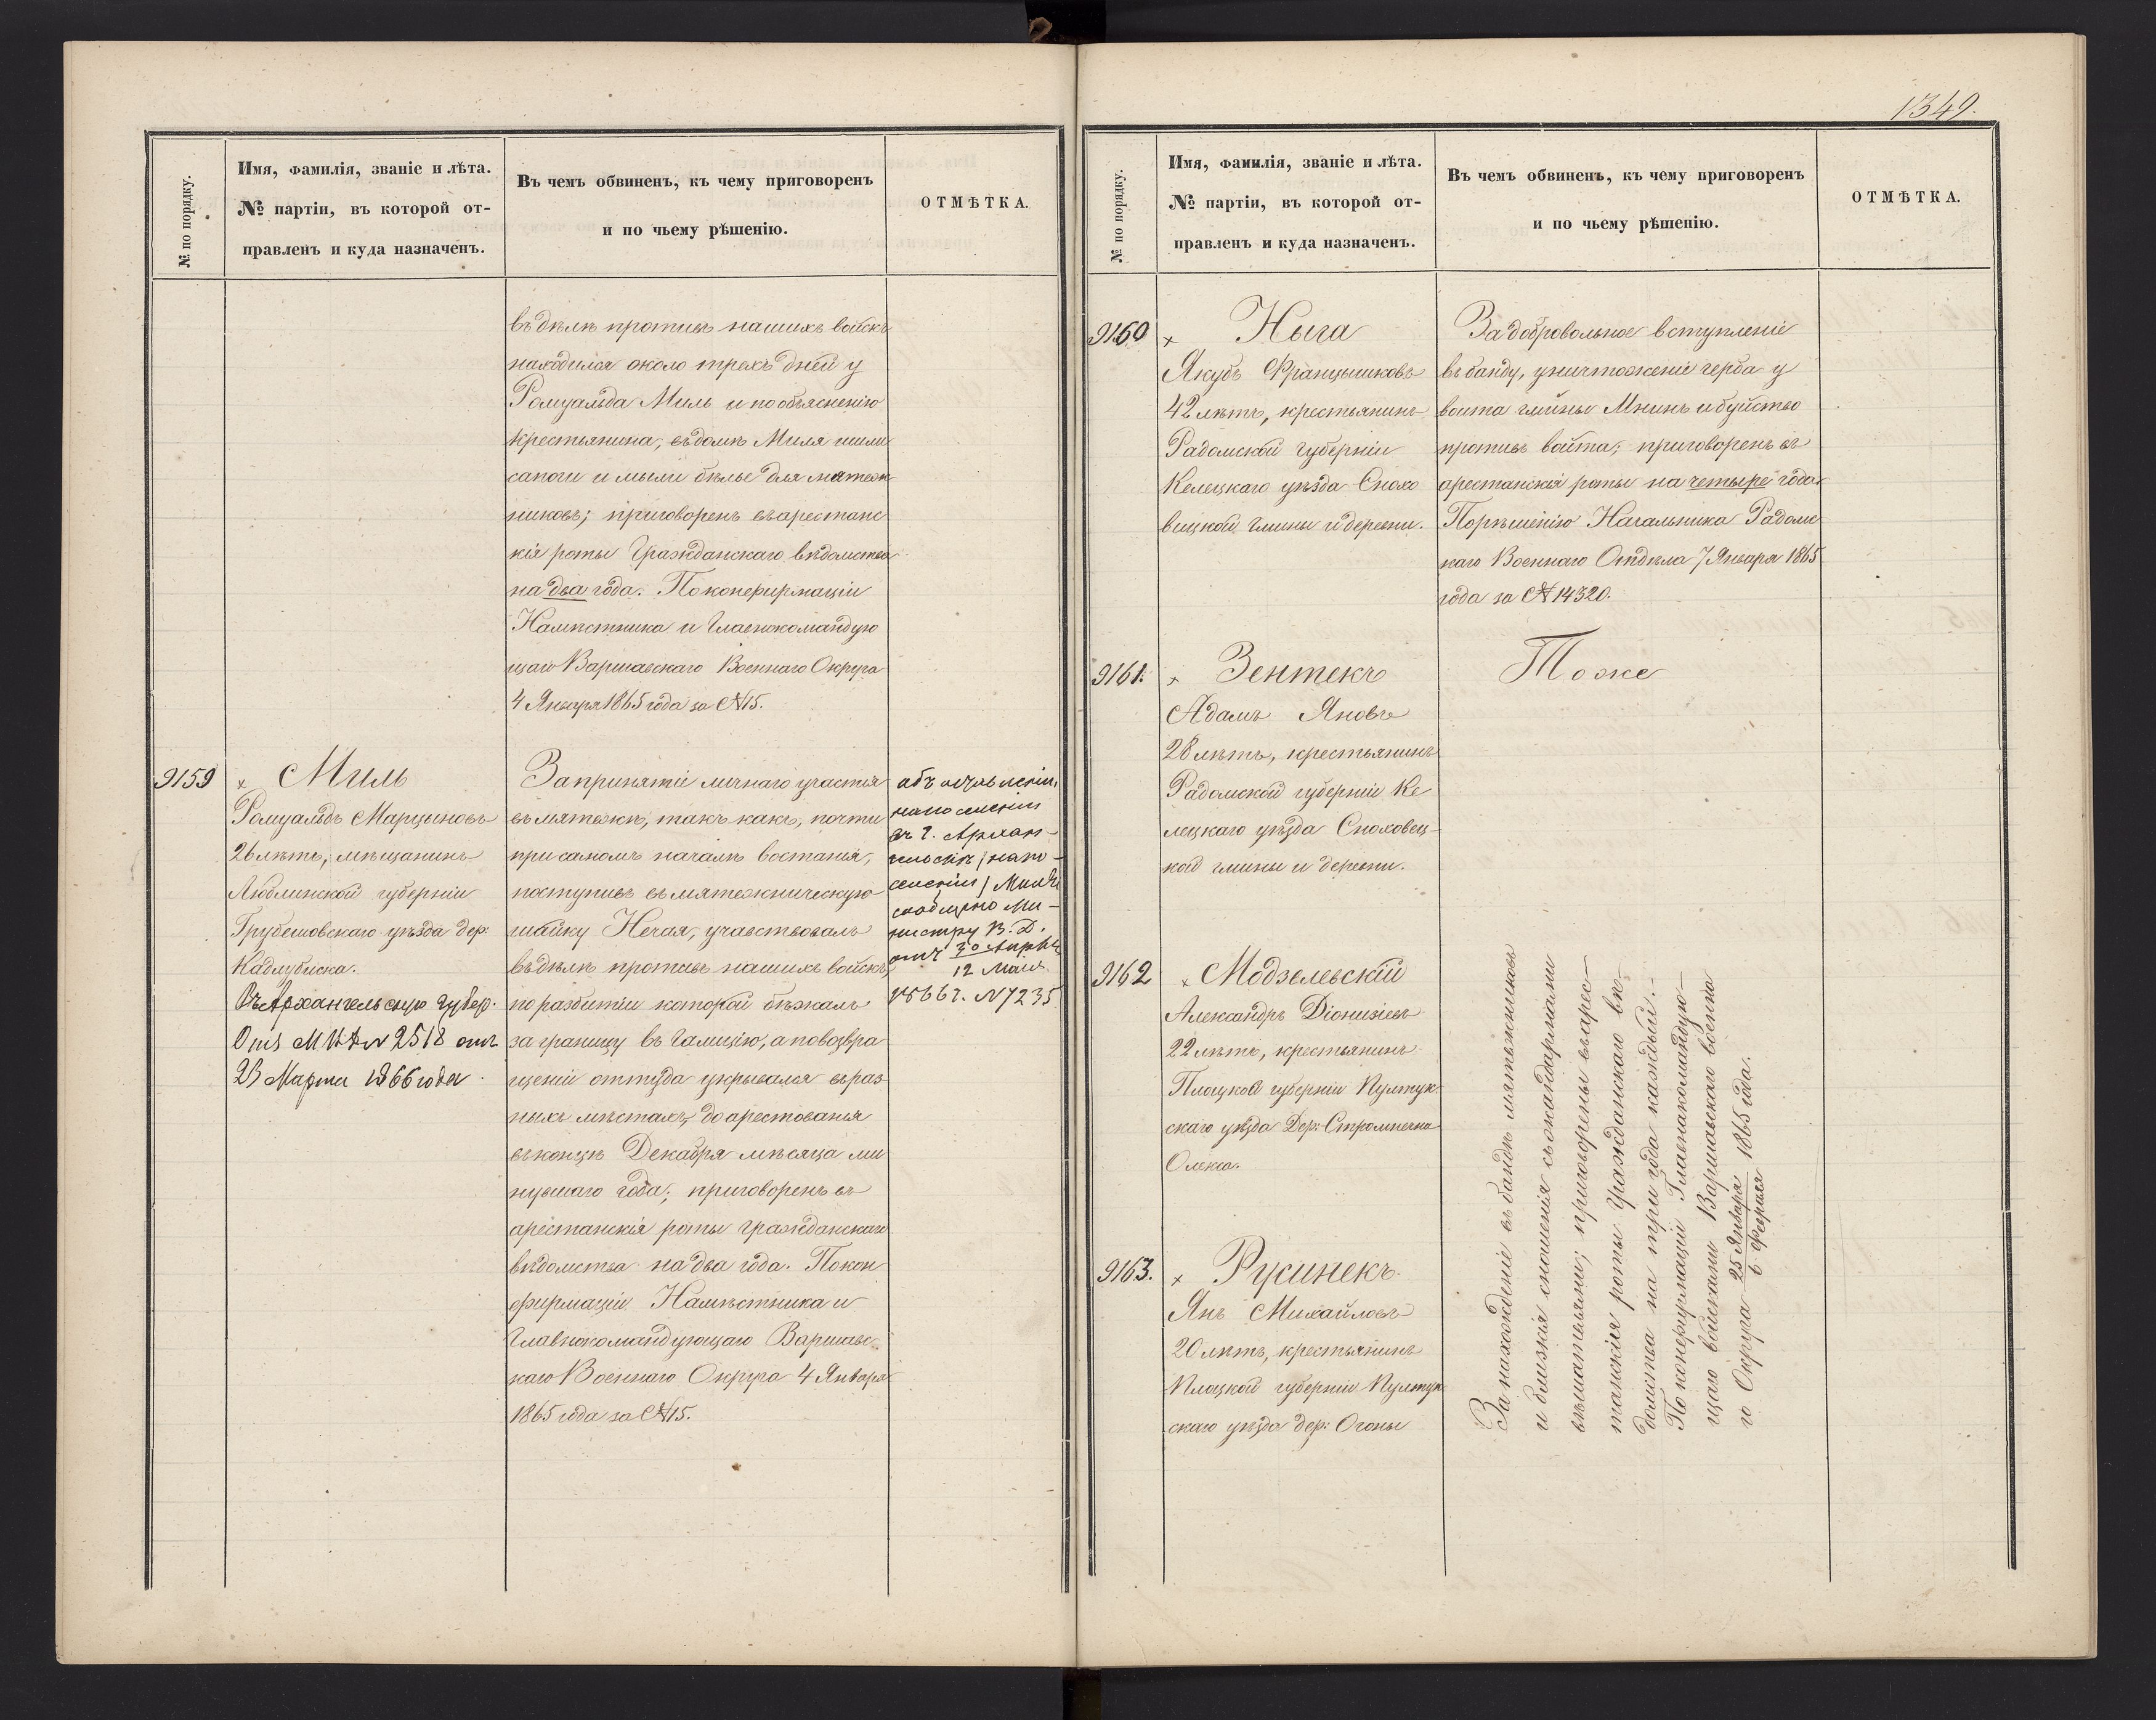 1349.
№ по порядку.
Имя, фамилія, званіе и лѣта.
№ партіи, въ которой от-
правленъ и куда назначенъ.
Въ чемъ обвиненъ, къ чему приговоренъ
и по чьему рѣшенію.
ОТМѢТКА.
въ дѣлѣ противъ нашихъ войскъ
находился около трехъ дней у
Ромуальда Миль и по объясненію
крестьянина, въ домѣ Миля шили
сапоги и мыли бѣлье для мятеж
никовъ; приговоренъ въ арестанс
кія роты Гражданскаго вѣдомства
на два года. По конфирмаціи
Намѣстника и Главнокомандую
щаго Варшавскаго Военнаго Округа
4 Января 1865 года за № 15.
9159
х Миль
Ромуальдъ Марцыновъ
26 лѣтъ, мѣщанинъ
Люблинской губерніи
Грубешовскаго уѣзда дер:
Кадлубиска.
Въ Архангельскую губер.
Отъ МВД № 2518 отъ
23 Марта 1866 года.
За принятіе личнаго участія
въ мятежѣ, такъ какъ, почти
при самомъ началѣ востанія,
поступивъ въ мятежническую
шайку Нечая, учавствовалъ
въ дѣлѣ противъ нашихъ войскъ,
по разбитіи которой бѣжалъ
за границу въ Галицію, а по возвра
щеніи оттуда укрывался въ раз
ныхъ мѣстахъ, до арестованія
въ концѣ Декабря мѣсяца ми
нувшаго года; приговоренъ въ
арестанскія роты гражданскаго
вѣдомства на два года. По кон
фирмаціи Намѣстника и
Главнокомандующаго Варшавс
каго Военнаго Округа 4 Января
1865 года за № 15.
объ
на поселеніи
въ г. Архан-
/ на по-
селеніи /
Ми-
нистру В. Д.
отъ 30 Апрѣля
12 Маія
1866 г. № 7235
№ по порядку.
Имя, фамилія, званіе и лѣта.
№ партіи, въ которой от-
правленъ и куда назначенъ.
Въ чемъ обвиненъ, къ чему приговоренъ
и по чьему рѣшенію.
ОТМѢТКА.
9160
х Ныга
Якубъ Францышковъ
42 лѣтъ, крестьянинъ
Радомской губерніи
Келецкаго уѣзда Снохо
вицкой гмины и деревни.
За добровольное вступленіе
въ банду, уничтоженіе герба у
воита гмины Мнинъ и буйство
противъ войта; приговоренъ въ
арестанскія роты на четыре года.
По рѣшенію Начальника Радомс
каго Военнаго Отдѣла 7 Января 1865
года за № 14320.
9161.
х Зентекъ
Адамъ Яновъ
28 лѣтъ, крестьянинъ
Радомской губерніи Ке
лецкаго уѣзда Сноховец-
кой гмины и деревни.
Тоже
9162
х Модзелевскій
Александръ Діонизіевъ
22 лѣтъ, крестьянинъ
Плоцкой губерніи Пултук
скаго уѣзда Дер:
9163.
х Русинекъ
Янъ Михайловъ
20 лѣтъ, крестьянинъ
Плоцкой губерніи Пултук
скаго уѣзда дер: Огоны
За нахожденіе въ бандѣ мятежниковъ
и близкія сношенія съ жандармами
вѣшателями; приговорены въ арес-
танскія роты Гражданскаго вѣ-
домства на три года каждый.-
По конфирмаціи Главнокомандую-
щаго войсками Варшавскаго военна
го Округа 25 Января 1865 года.
6 Февраля